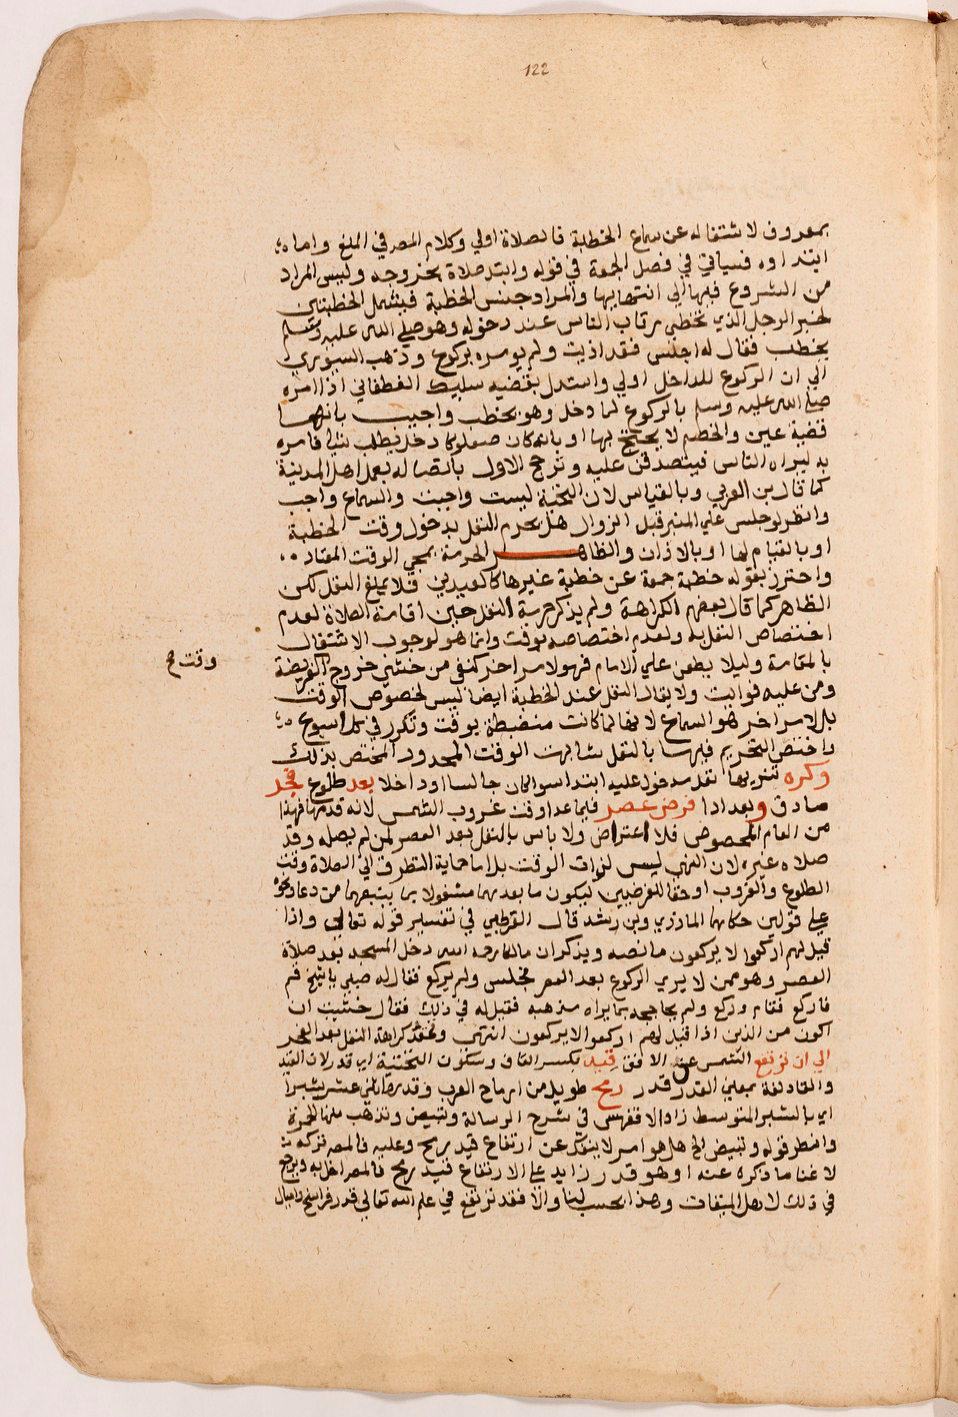 122
بمعروف لاشتغاله عن سماع الخطبة فالصلاة اولي وكلام المصر في المبلغ واما
ابتداوه فسياتي في فصل الجمعة في قوله وابتد صلاة بخروجه وليس المراد
من الشروع فيها الي انتهايها والمراد جنس الخطبة فيشمل الخطبتين
لخبر الرجل الذي تخطي رقاب الناس عند دخوله وهو صلي الله عليه وسلم
يخطب فقال له اجلس فقد اذيت ولم يومره بركوع وذهب السيوري
الي ان الركوع للداخل اولي واستدل بقضيه سليك الغطفاني اذ امره
صلي الله عليه وسلم بالركوع لما دخل وهو يخطب واجيب بانها
قضية عين والخصم لا يحتج بها او بانه كان صعلوكا دخل يطلب شيا فامره
به ليراه الناس فيتصدقن عليه وترجح الاول باتصاله بعمل اهل المدينة
كما قال بن العربي وبالقياس لان التحية ليست واجبت والسماع واجب
وانظر لو جلس علي المنبر قبل الزوال هل يحرم النفل بدخول وقت الخطبة
او بالقيام لها او بالاذان والظاهر الحرمة بمجي الوقت المعتاد
واحترز بقوله خطبة جمعة عن خطبة غيرها كالعيدين فلا يمنع النفل لكن
الظاهر كما قال بعضهم الكراهة ولم يذكر حرمة النفل حين اقامة الصلاة لعدم
اختصاص النفل به ولعدم اختصاصه بوقت وانما هو لوجوب الاشتغال
بالمقامة وليلا يطعن علي الامام فهو لامر اخر كنفي من خشي خروج الفريضة
وقت صح
ومن عليه فوايت ولا يقال النفل عند الخطبة ايضا ليس لخصوص الوقت
بل لامر اخر هو السماع لانها لما كانت منضبطة بوقت وتكرر في كل اسبوع
واختص التحريم فيها بالنفل شابهت الوقت المحدود المختص بذلك
وكره تنزيها نفل مدخول عليه ابتداء سوا كان جالسا او داخلا بعد طلوع فجر
صادق وبعد ادا فرض عصر فيما عدا وقت غروب الشمس لانه قدمها فهذا
من العام المخصوص فلا اعتراض ولا باس بالنفل بعد العصر لمن لم يصله وقد
صلاه غيره لان النهي ليس لذات الوقت بل اما حماية التطرف الي الصلاة وقت
الطلوع والغروب او حقا للفرضين ليكون ما بعدهما مشغولا بما يتبعهما من دعا ونحوه
علي قولين حكاهما المازري وبن رشد قال القرطبي في تفسير قوله تعالي واذا
قيل لهم اركعوا لا يركعون ما نصه ويذكر ان مالكا رحمه الله دخل المسجد بعد صلاة
العصر وهو ممن لا يري الركوع بعد العصر فجلس ولم يركع فقال له صبي يا شيخ قم
فاركع فقام وركع ولم يحاججه بما يراه مذهبه فقيل له في ذلك فقال خشيت ان
اكون من الذين اذا قيل لهم اركعوا لا يركعون انتهي وتمتد كراهة النفل بعد الفجر
الي ان ترتفع الشمس عن الافق قيد بكسر القاف وسكون التحتية اي قدر لان القيد
والقاد لغة بمعني القدر قدر رمح طويل من ارماح العرب وقدره اثني عشر شبرا
اي بالشبر المتوسط زاد الاقفهسي في شرح الرسالة وتبيض وتذهب منها الحمرة
وانظر قوله وتبيض الخ هل هو امر لا ينفك عن ارتفاع قيد رمح وعليه فالمصر تركه
لاغنا ما ذكره عنه او هو قدر زايد علي الارتفاع قيد رمح فالمصر اخل به ويرجع
في ذلك لاهل الميقات وهذا بحسب لنا والا فقد ترتفع في علم الله تعالي قدر فراسخ واميال